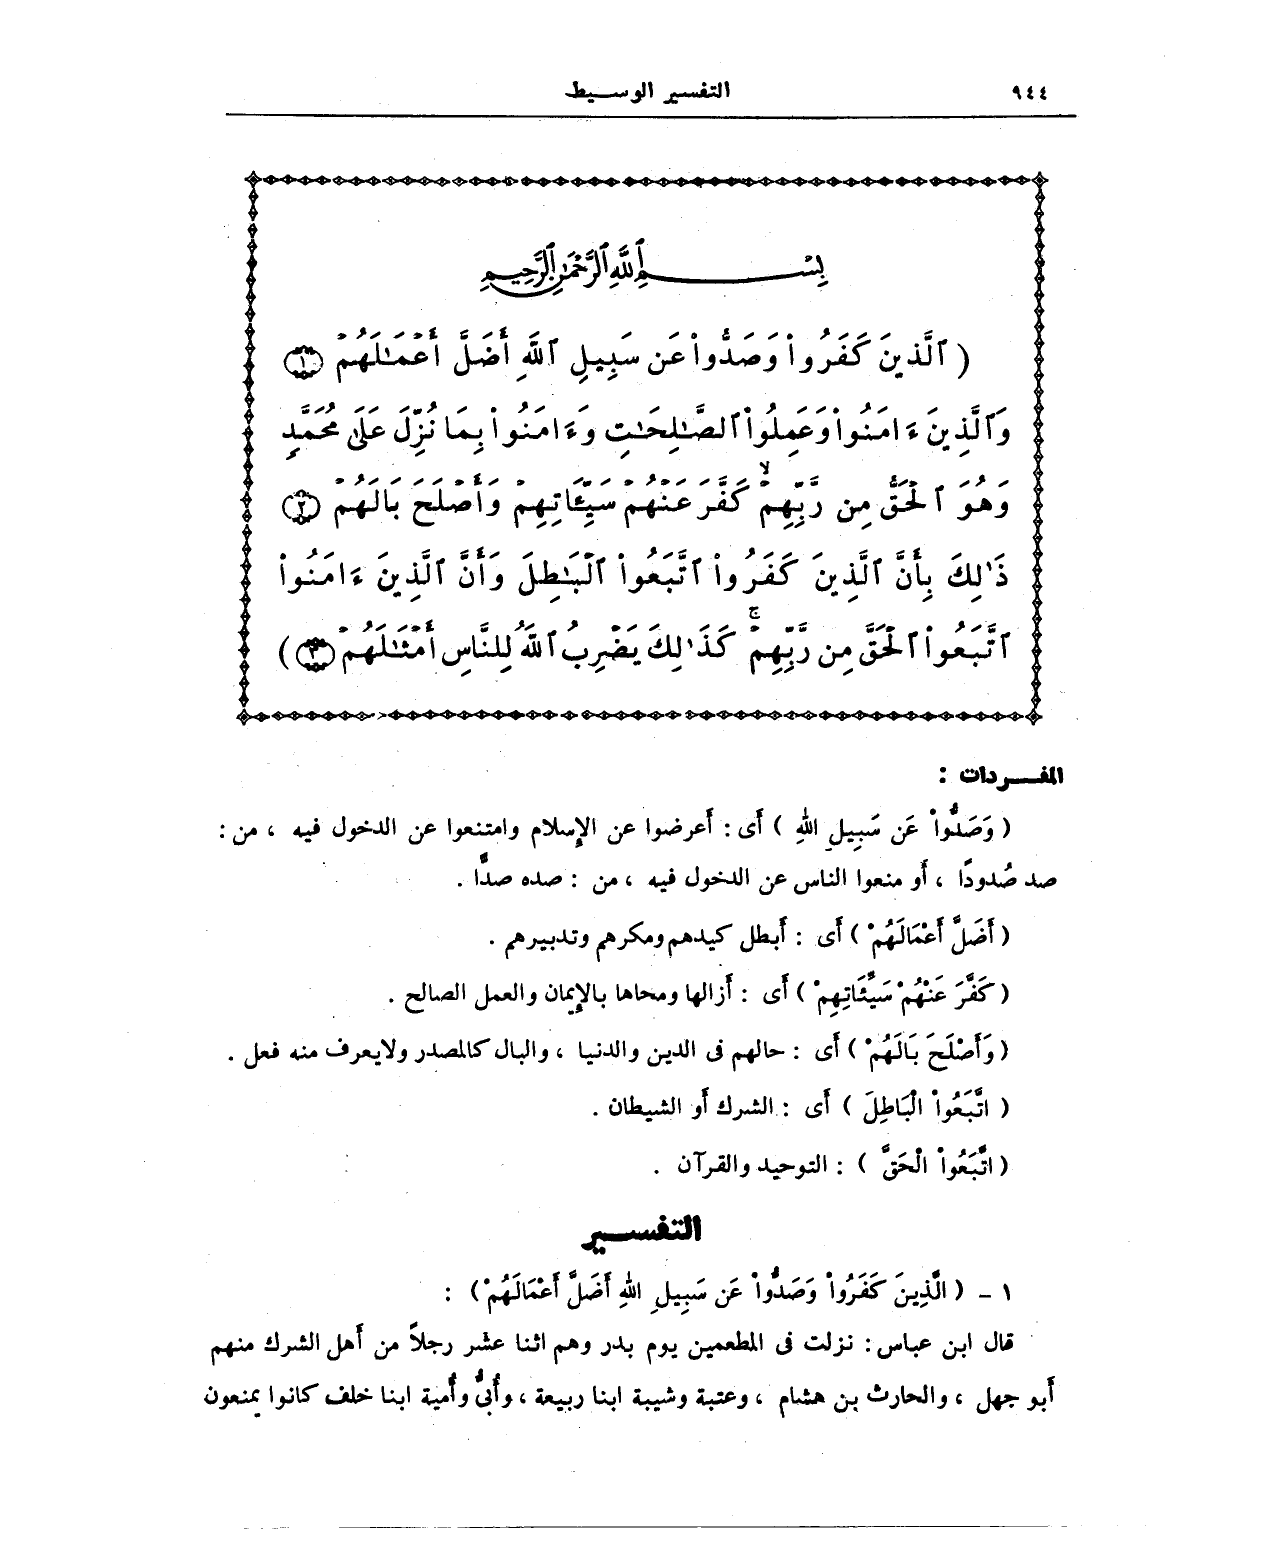 ٩٤٤
التفسير الوسيط
بِسْمِ ٱللَّهِ ٱلرَّحْمَٰنِ ٱلرَّحِيمِ
( ٱلَّذِينَ كَفَرُوا۟ وَصَدُّوا۟ عَن سَبِيلِ ٱللَّهِ أَضَلَّ أَعْمَٰلَهُمْ ١
وَٱلَّذِينَ ءَامَنُوا۟ وَعَمِلُوا۟ ٱلصَّٰلِحَٰتِ وَءَامَنُوا۟ بِمَا نُزِّلَ عَلَىٰ مُحَمَّدٍ
وَهُوَ ٱلْحَقُّ مِن رَّبِّهِمْ ۙ كَفَّرَ عَنْهُمْ سَيِّـَٔاتِهِمْ وَأَصْلَحَ بَالَهُمْ ٢
ذَٰلِكَ بِأَنَّ ٱلَّذِينَ كَفَرُوا۟ ٱتَّبَعُوا۟ ٱلْبَٰطِلَ وَأَنَّ ٱلَّذِينَ ءَامَنُوا۟
ٱتَّبَعُوا۟ ٱلْحَقَّ مِن رَّبِّهِمْ ۚ كَذَٰلِكَ يَضْرِبُ ٱللَّهُ لِلنَّاسِ أَمْثَٰلَهُمْ ٣ )
المفـردات :
( وَصَدُّواْ عَن سَبِيلِ اللهِ ) أَى : أَعرضوا عن الإِسلام وامتنعوا عن الدخول فيه ، من :
صد صُدودًا ، أَو منعوا الناس عن الدخول فيه ، من : صده صدًّا .
( أَضَلَّ أَعْمَالَهُمْ ) أَى : أَبطل كيدهم ومكرهم وتدبيرهم .
( كَفَّرَ عَنْهُمْ سَيِّئَاتِهِمْ ) أَى : أَزالها ومحاها بالإِيمان والعمل الصالح .
( وَأَصْلَحَ بَالَهُمْ ) أَى : حالهم فى الدين والدنيا ، والبال كالمصدر ولايعرف منه فعل .
( اتَّبَعُواْ الْبَاطِلَ ) أَى : الشرك أَو الشيطان .
( اتَّبَعُواْ الْحَقَّ ) : التوحيد والقرآن .
التفسـير
١ - ( الَّذِينَ كَفَرُواْ وَصَدُّواْ عَن سَبِيلِ اللهِ أَضَلَّ أَعْمَالَهُمْ ) :
قال ابن عباس : نزلت فى المطعمين يوم بدر وهم اثنا عشر رجلاً من أَهل الشرك منهم
أَبو جهل ، والحارث بن هشام ، وعتبة وشيبة ابنا ربيعة ، وأُبىُّ وأُمية ابنا خلف كانوا يمنعون